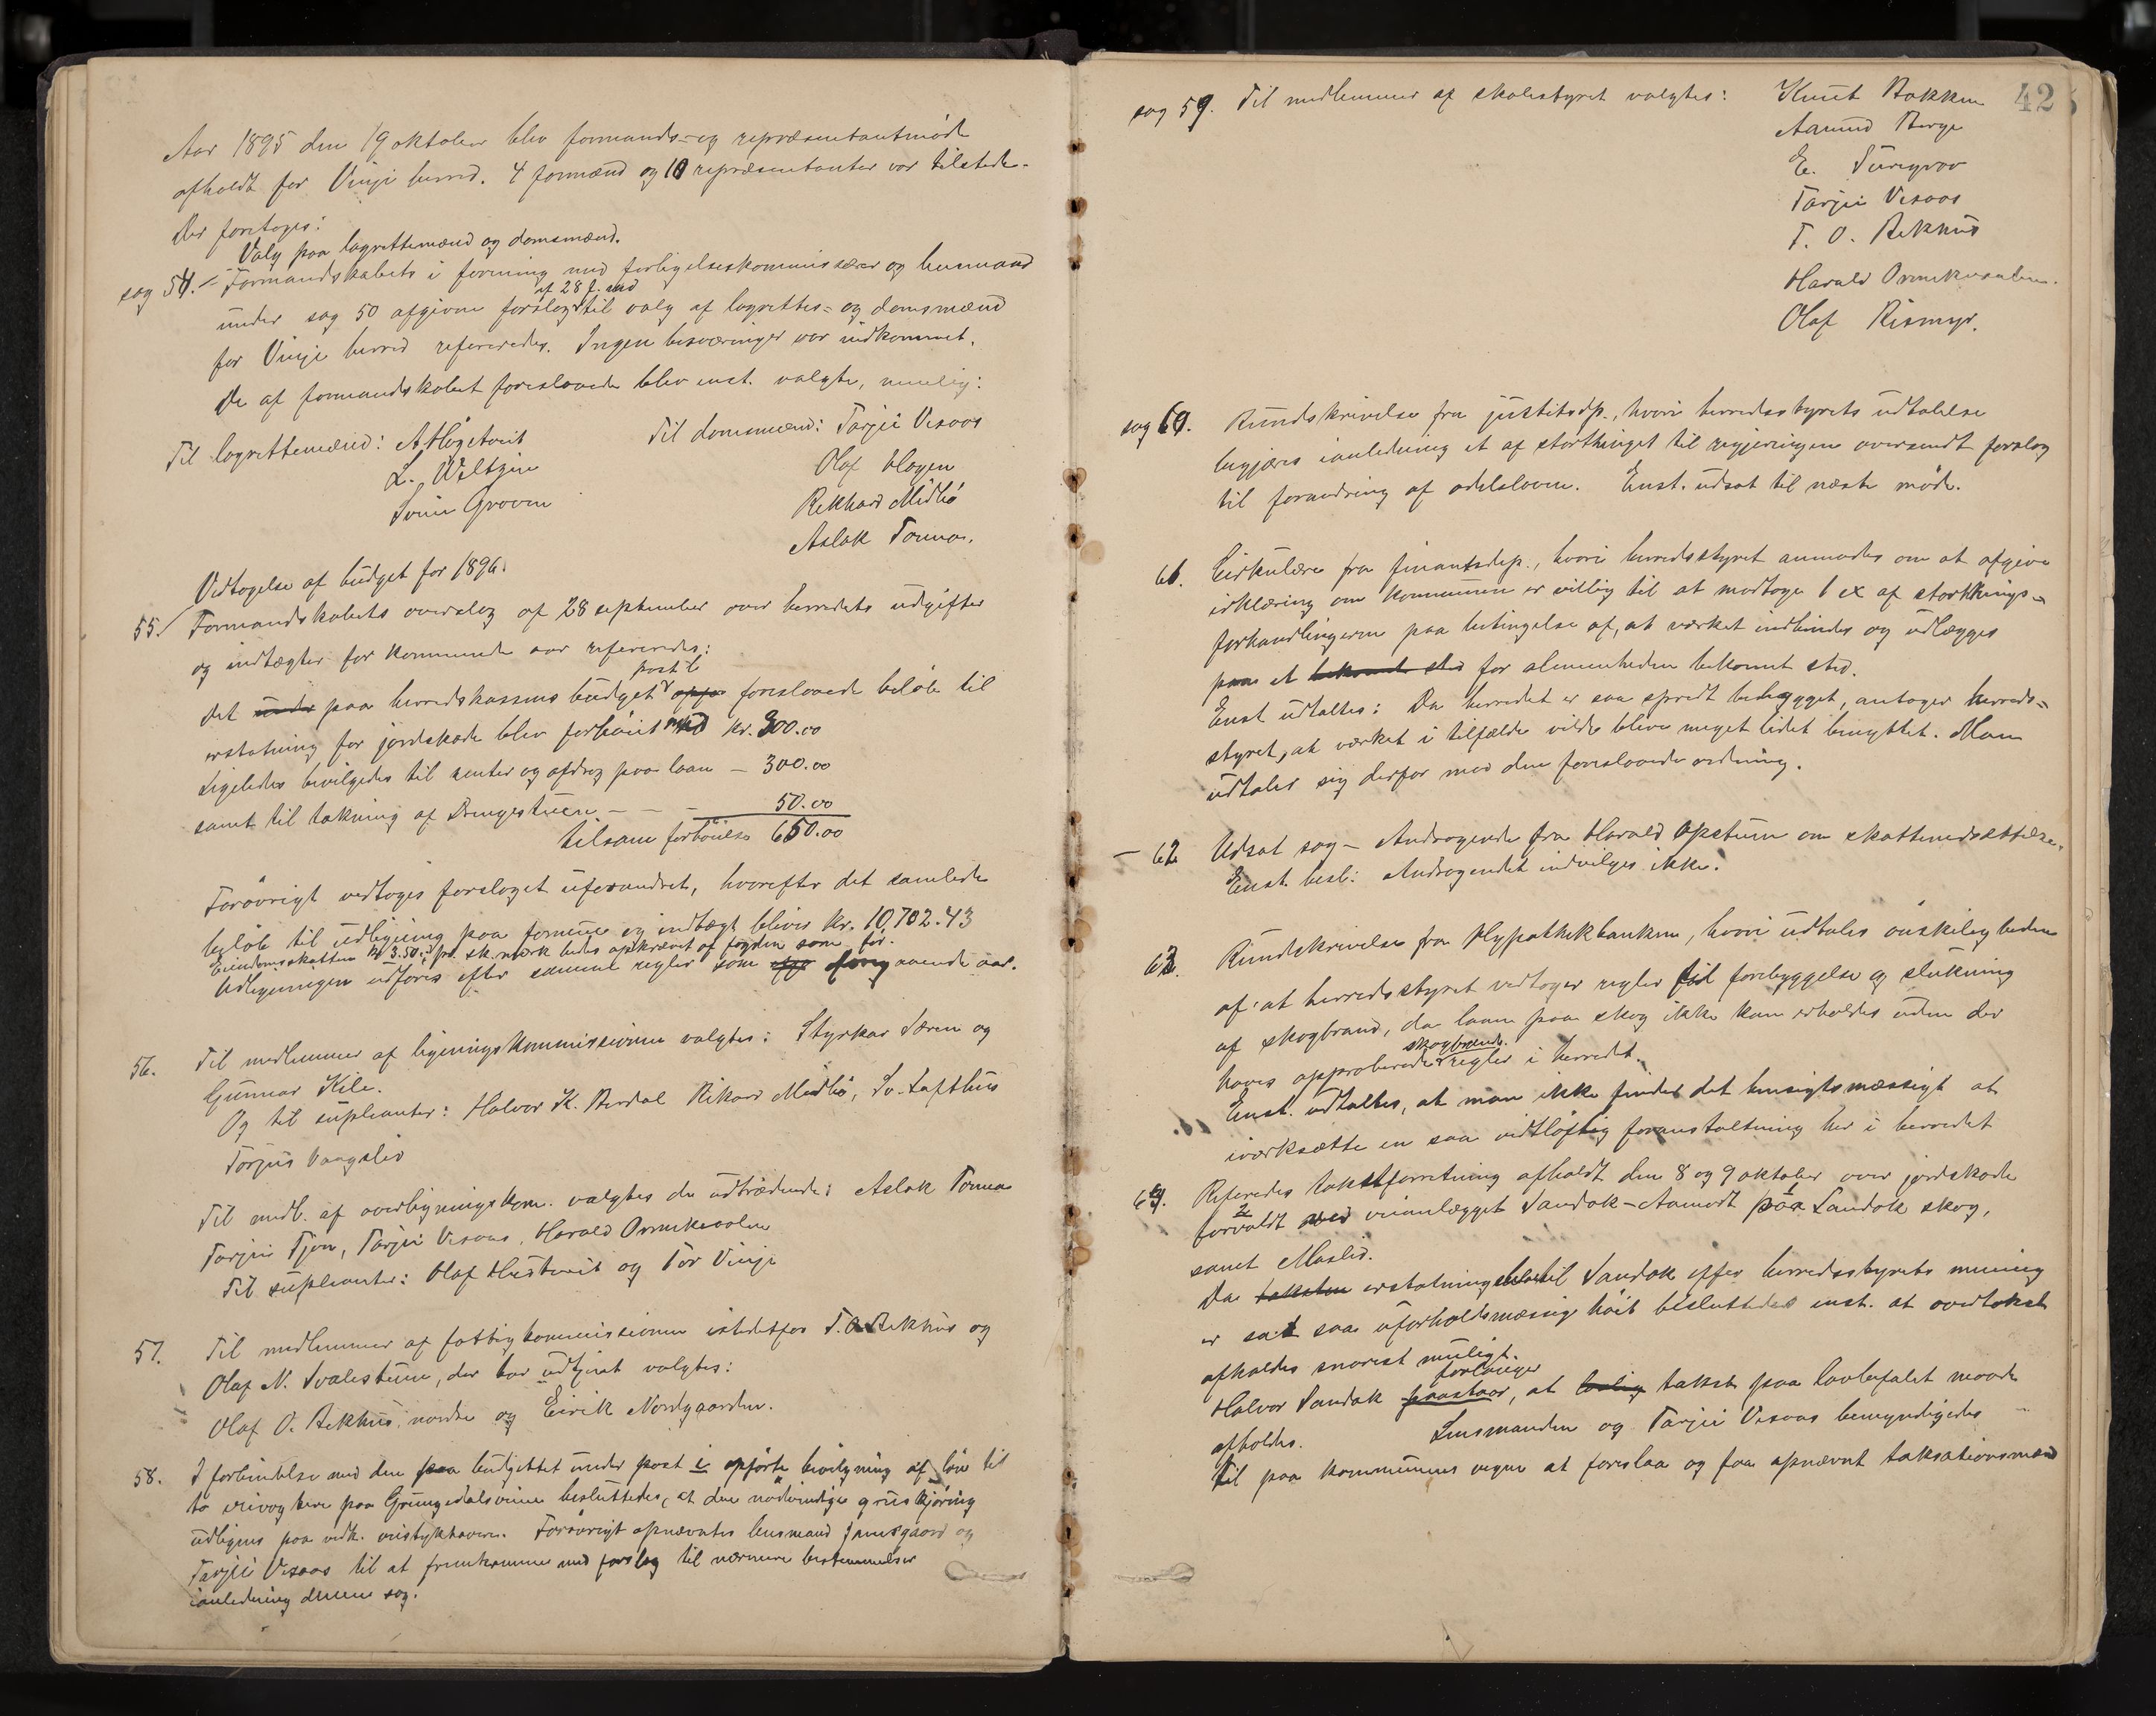 Aar 1895 den 19 oktober blev formands- og repræsentantmøde
afholdt for Vinje herred. 4 formænd og 10 repræsentanter var tilstede.
Der foretoges:
Valg paa lagrettemænd og domsmænd.
sag 54. Formandskabets i forening med forligelseskommissærer og lensmand
af 28 f. md
under sag 50 afgivne forslag til valg af lagrettes- og domsmænd
for Vinje herred refereredes. Ingen besværinger var indkommet.
De af formandskabet foreslaaede blev enst. valgte, nemlig:
Til lagrettemænd: A Høgetveit Til domsmænd: Tarjei Vesaas
L. Weltzin Olaf Hagen
Svein Groven Rikhard Midbø
Aslak Tounaa.
Vedtagelse af budget for 1896.
55. Formandskabets overslag af 28 september over herredets udgifter
og indtægter for kommende aar refereredes:
post 6
Det under paa herredskassens budget opfø foreslaaede beløb til
erstatning for jordskade blev forhøiet med kr. 300.00
Ligeledes bevilgedes til renter og afdrag paa laan – 300.00
samt til takning af Drengestuen – – – 50.00
tilsam. forhøielse 650.00
Forøvrigt vedtoges forslaget uforandret, hvorefter det samlede
beløb til udligning paa formue og indtægt bliver kr. 10,702.43
Eiendomsskatten kr 3.50 pr. sk.mark bedes opkrævet af fogden som før.
Udligningen udføres efter samme regler som opp foregaaende aar.
56. Til medlemmer af ligningskommissionen valgtes: Styrkar Særen og
Gunnar Kile.
Og til supleanter: Halvor K. Berdal Rikard Midbø, Sv. Lofthus
Torjus Vaagslid
Til medl. af overligningskom. valgtes de udtrædende: Aslak Tounaa
Tarjei Tjon, Tarjei Vesaas, Harald Ormekvalen
Til supleanter: Olaf Hustveit og Tor Vinje
57. Til medlemmer af fattigkommissionen istedetfor T. O. Bekhus og
Olaf N. Svalestuen, der har udtjent valgtes:
Olaf O. Bekhus nordre og Eirik Nordgaarden.
58. I forbindelse med den paa budgettet under post i opførte bevilgning af løn til
to veivogtere paa Grungedalsveien besluttedes, at den nødvendige gruskjøring
udlignes paa vedk. veistykhavere. Forøvrigt opnævntes lensmand Jamsgaard og
Tarjei Vesaas til at fremkomme med forslag til nærmere bestemmelser
ianledning denne sag.
42
sag 59. Til medlemmer af skolestyret valgtes: Knut Bakken
Aamund Berge
E. Turigrov
Tarjei Vesaas
T. O. Bekhus
Harald Ormekvalen.
Olaf Rismyr.
sag 60. Rundskrivelse fra justitsdp., hvori herredsstyrets udtalelse
begjæres ianledning et af storthinget til regjeringen oversendt forslag
til forandring af odelsloven. Enst. udsat til næste møde.
61. Cirkulære fra finantsdep., hvori herredsstyret anmodes om at afgive
erklæring om kommunen er villig til at modtage 1 ex af storthings-
forhandlingerne paa betingelse af, at værket indbindes og udlægges
paa et bekvemt sted for almenheden bekvemt sted.
Enst udtaltes: Da herredet er saa spredt bebygget, antager herreds-
styret, at værket i tilfælde vilde blive meget lidet benyttet. Man
udtaler sig derfor mod den foreslaaede ordning.
62 Udsat sag – Andragende fra Harald Opstuen om skattenedsættelse.
Enst. besl: Andragendet indvilges ikke.
63. Rundskrivelse fra Hypothekbanken, hvori udtales ønskeligheden
af at herredsstyret vedtager regler til forebyggelse og slukning
af skogbrand, da laan paa skog ikke kan erholdes uden der
skogbrands
haves approberede regler i herredet.
Enst. udtaltes, at man ikke finder det hensigtsmæssigt at
iværksætte en saa vidtløftig foranstaltning her i herredet
64. Referedes takstforretning afholdt den 8 og 9 oktober over jordskade
forvoldt ved veianlægget Vandok–Aamodt paa Sandok skog,
samt Maslid.
Da taksten erstatningsbeløbet til Sandok efter herredsstyrets mening
er sat saa uforholdsmæssig høit besluttedes enst. at overtakst
afholdes snarest muligt.
forlanger
Halvor Sandok paastaar, at lovlig takst paa lovbefalet maade
afholdes. Lensmanden og Tarjei Vesaas bemyndigedes
til paa kommunens vegne at foreslaa og faa opnævnt taksationsmænd